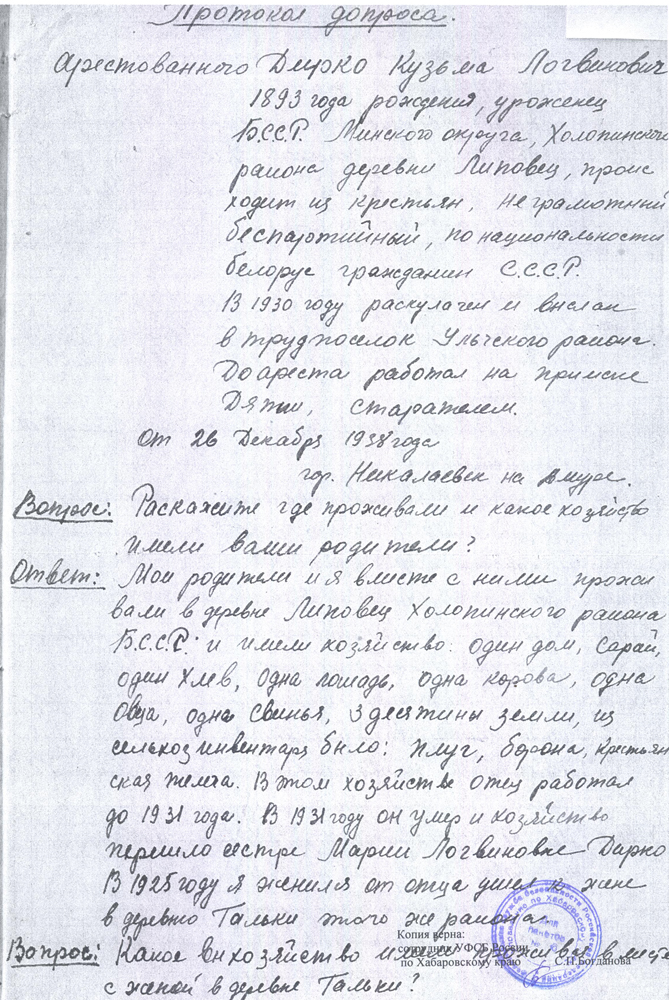 Протокол допроса.
Арестованного Дирко Кузьма Логвинович
1893 года рождения, уроженец
Б.С.С.Р. Минского округа, Холопинского
района деревни Липовец, проис
ходит из крестьян, неграмотный
беспартийный, по национальности
белорус гражданин С.С.С.Р.
В 1930 году раскулачен и выслан
в трудпоселок Ульчского района.
До ареста работал на прииске
Дяппе, старателем.
От 26 Декабря 1938 года
гор. Николаевск на Амуре.
Вопрос: Раскажите где проживали и какое хозяйство
имели ваши родители?
Ответ: Мои родители и я вместе с ними прожи
вали в деревне Липовец Холопинского района
Б.С.С.Р. и имели хозяйство: один дом, сарай,
один хлев, одна лошадь, одна корова, одна
овца, одна свинья, 3 десятины земли, из
сельхозинвентаря было: плуг, борона, крестьян
ская телега. В этом хозяйстве отец работал
до 1931 года. В 1931 году он умер и хозяйство
перешло сестре Марии Логвиновне Дирко
В 1925 году я женился от отца ушел к жене
в деревню Тальки этого же района.
Вопрос: Какое вы хозяйство имели проживая вместе
с женой в деревне Тальки?
Копия верна:
сотрудник УФСБ России
по Хабаровскому краю С.П.Богданова